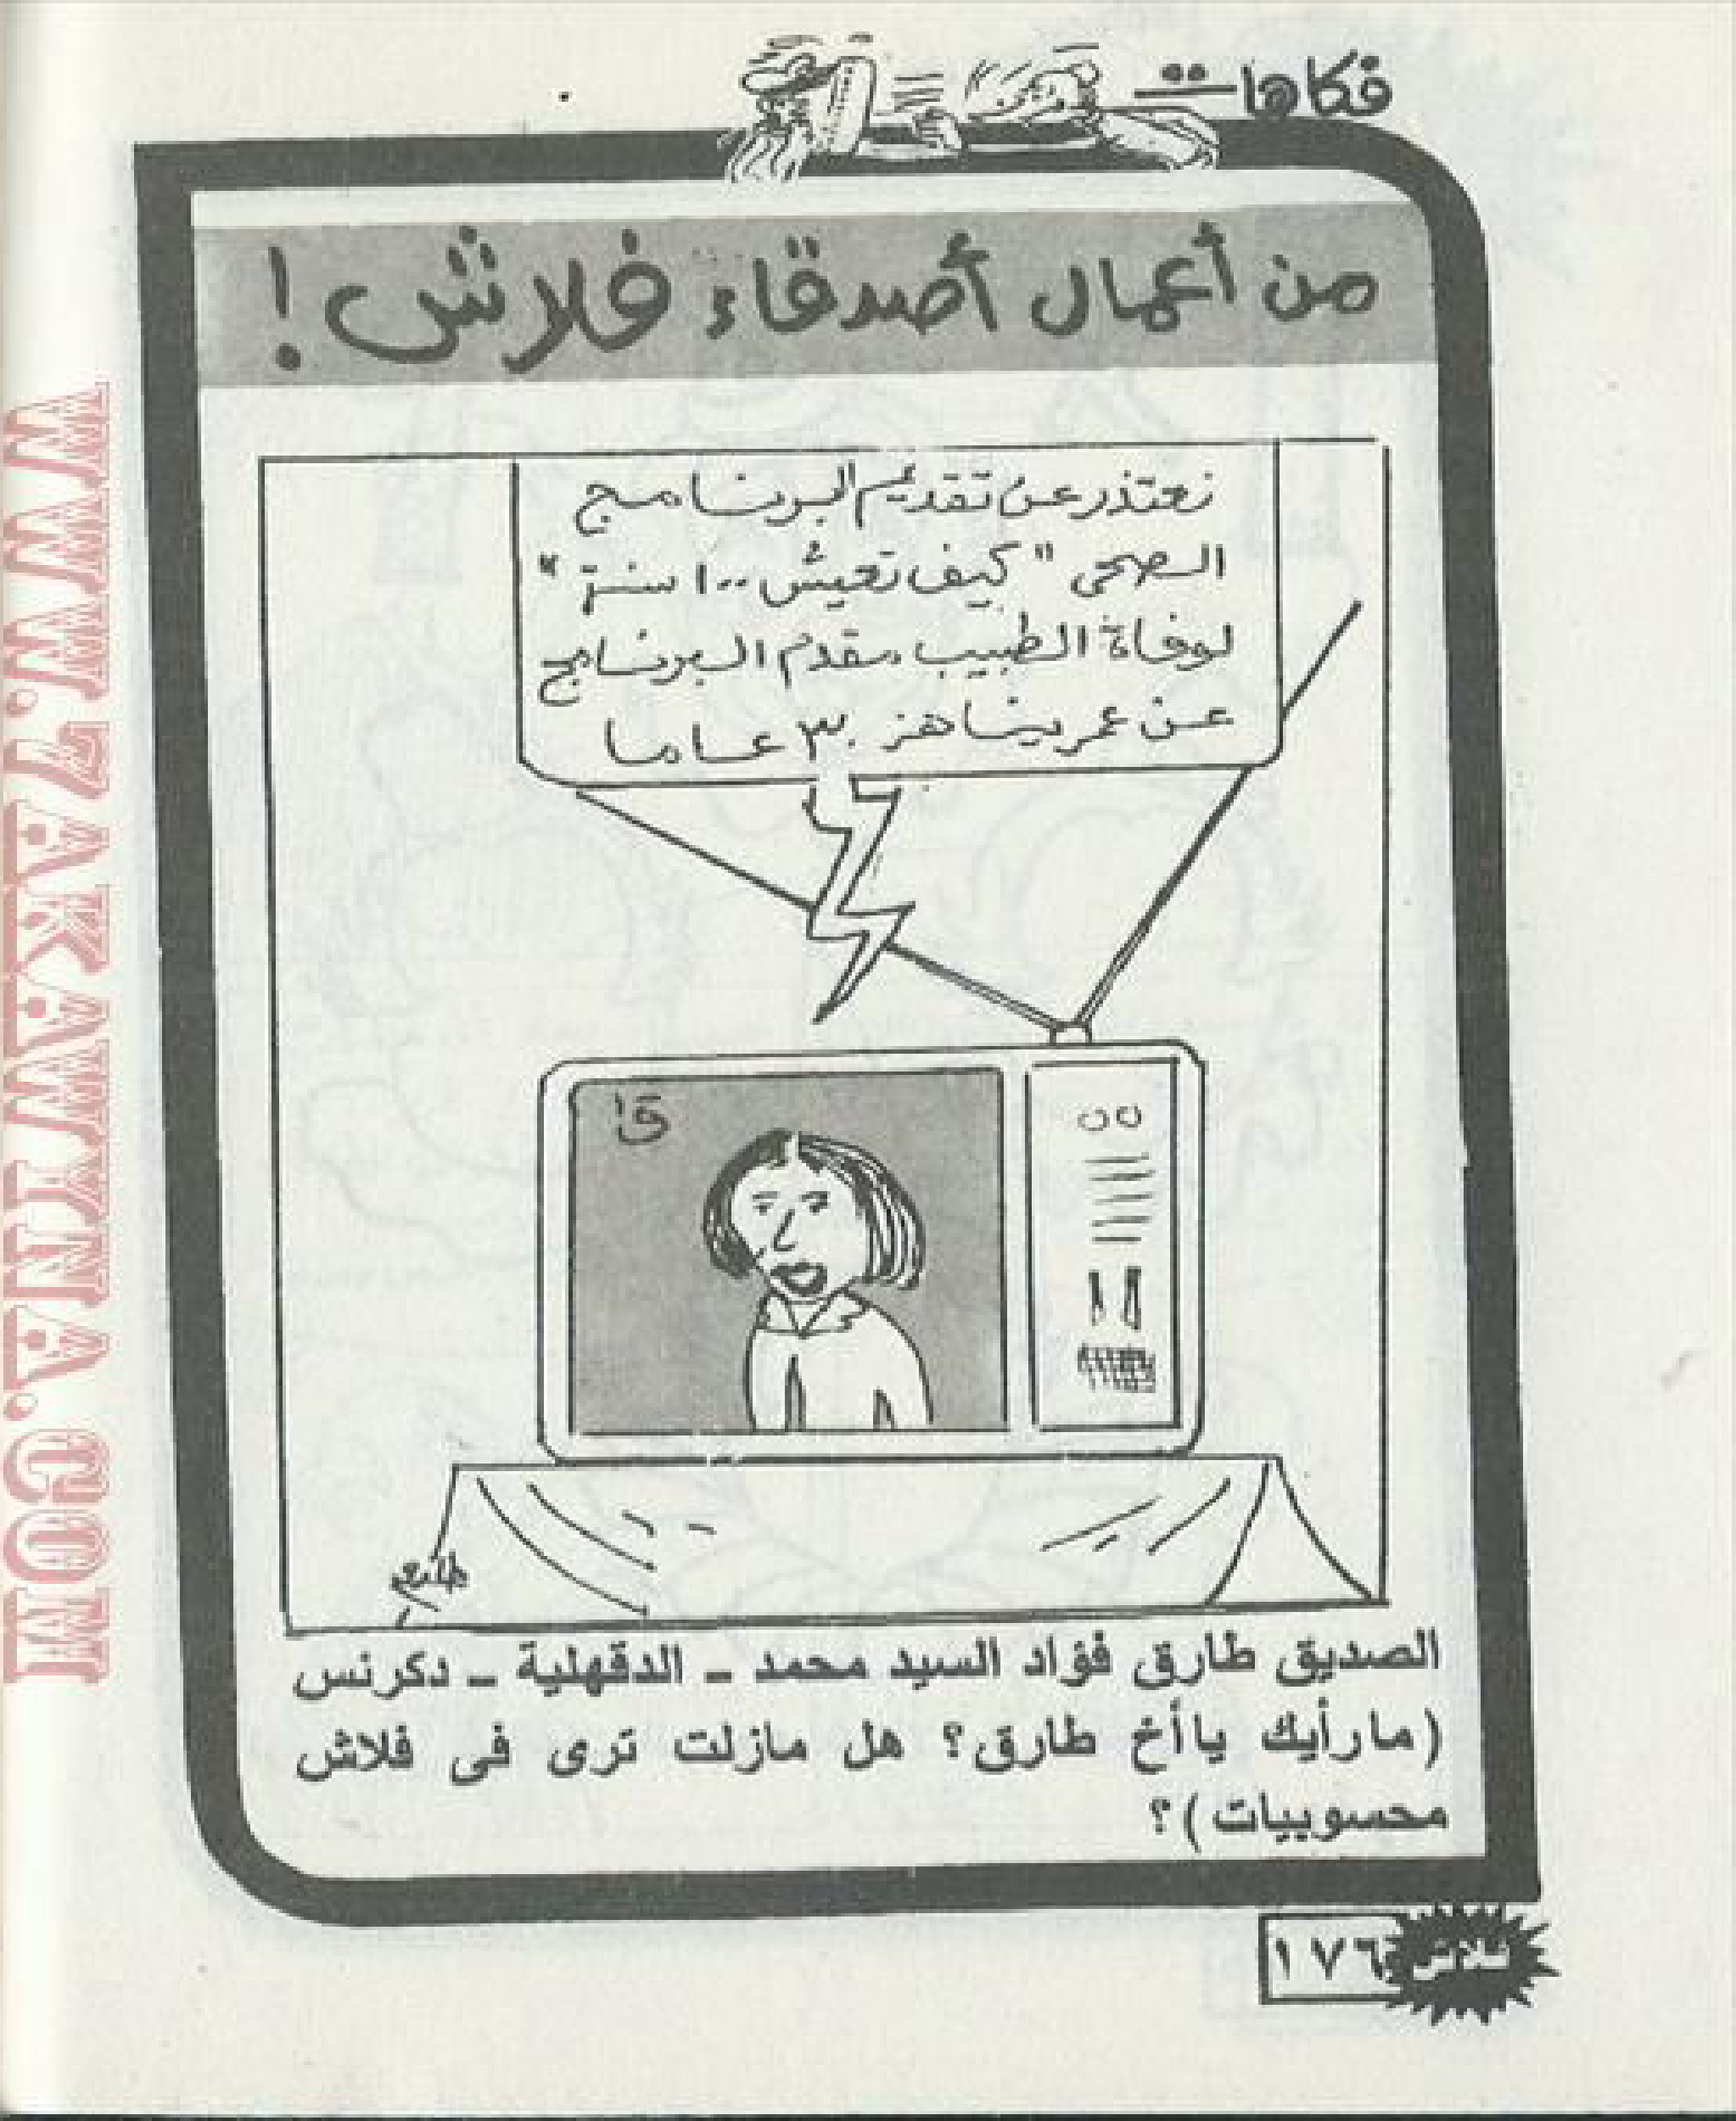 فكاهات
من أعمال أصدقاء فلاش !
نعتذر عن تقديم البرنامج
الصحى " كيف تعيش ١٠٠ سنة "
لوفاة الطبيب مقدم البرنامج
عن عمر يناهز ٣٠ عاما
ق١
طارق
الصديق طارق فؤاد السيد محمد ــ الدقهلية ــ دكرنس
(مارأيك ياأخ طارق؟ هل مازلت ترى فى فلاش
محسوبيات)؟
فلاش ١٧٦
WWW.7AKAWYNA.COM